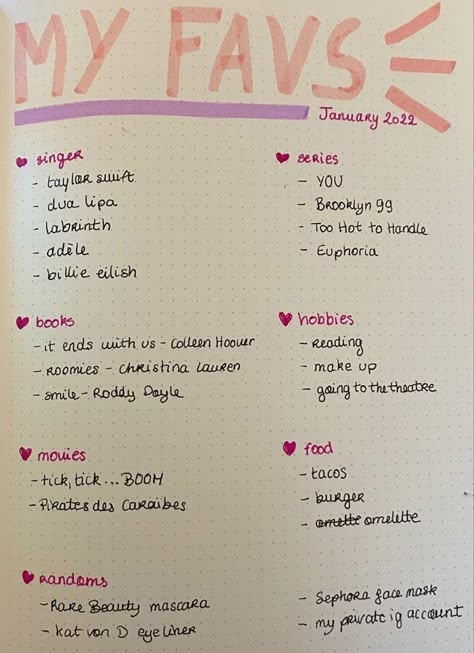 MY FAVS
January 2022
singer
- taylor swift
- dua lipa
- labrinth
- adèle
- billie eilish
series
- YOU
- Brooklyn 99
- Too Hot to Handle
- Euphoria
books
- it ends with us - Colleen Hoover
- Roomies - Christina Lauren
- smile - Roddy Doyle
hobbies
- Reading
- make up
- going to the theatre
movies
- tick, tick... BOOM
- Pirates des Caraïbes
food
- tacos
- burger
- omette omelette
randoms
- Rare Beauty mascara
- kat von D eye liner
- Sephora face mask
- my private ig account